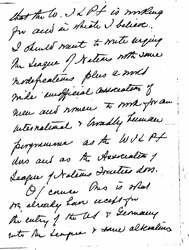 that the W. I L P F is working
for and in which I believe.
I should want to write urging
the League of Nations with some
modifications plus a world
wide unofficial association of
men and women to work for an
international & broadly human
programme as the W I L P F
does and as the Association of
League of Nations Societies does.
Of course this is what
we already have except for
the entry of the U.S & Germany
into the League & some alterations